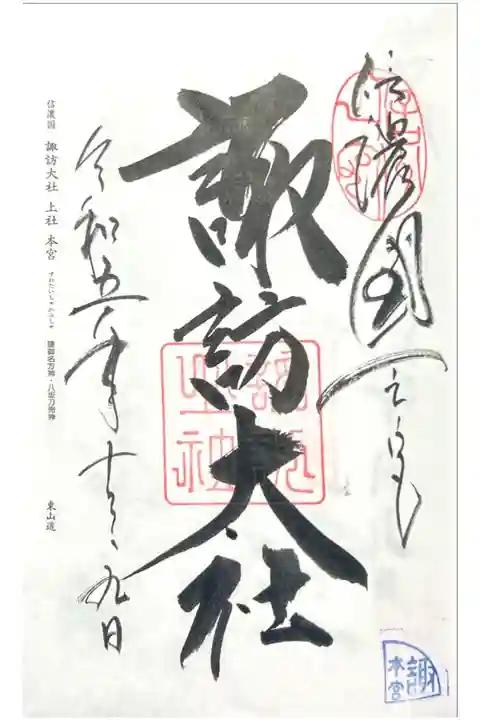 信濃国一之宮
諏訪大社
令和五年十二月九日
信濃国 諏訪大社 上社 本宮 すわたいしゃかみしゃ 建御名方神・八坂刀売神 東山道
諏訪
之神社
諏
本宮